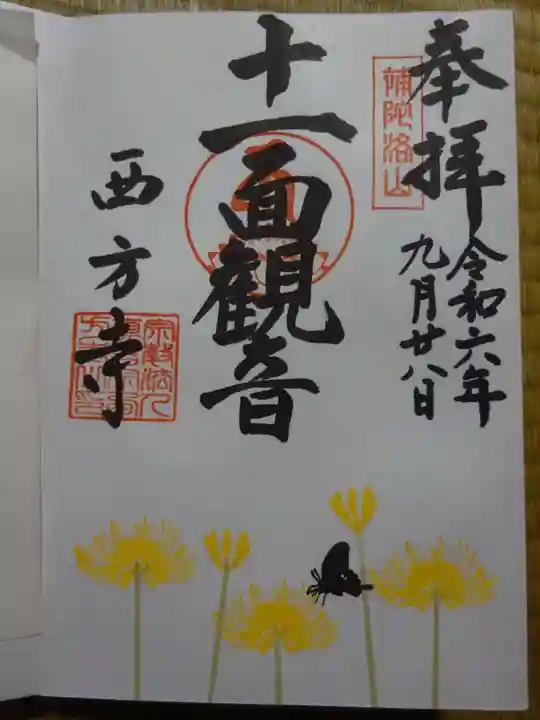 奉拝
補陀洛山
令和六年
九月廿八日
十一面観音
西方寺